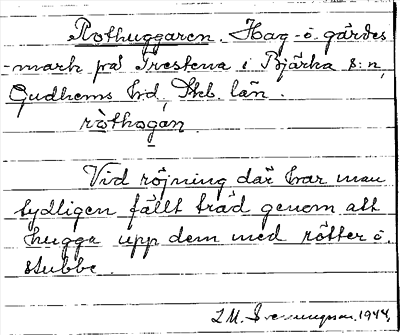 Rothuggaren. Hag- o. gärdes
-mark på Trestena i Bjärka s:n,
Gudhems hd, Skb. län.
ròthogan
Vid röjning där har man
tydligen fällt träd genom att
hugga upp dem med rötter o.
stubbe.
1944.